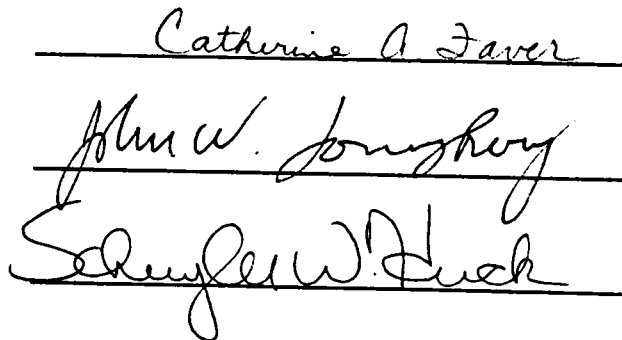 Catherine A Faver
John W. Lounsbury
Schuyler W. Huck